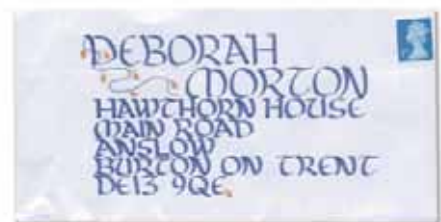 DEBORAH
MORTON
HAWTHORN HOUSE
MAIN ROAD
ANSLOW
BURTON ON TRENT
DE13 9QE